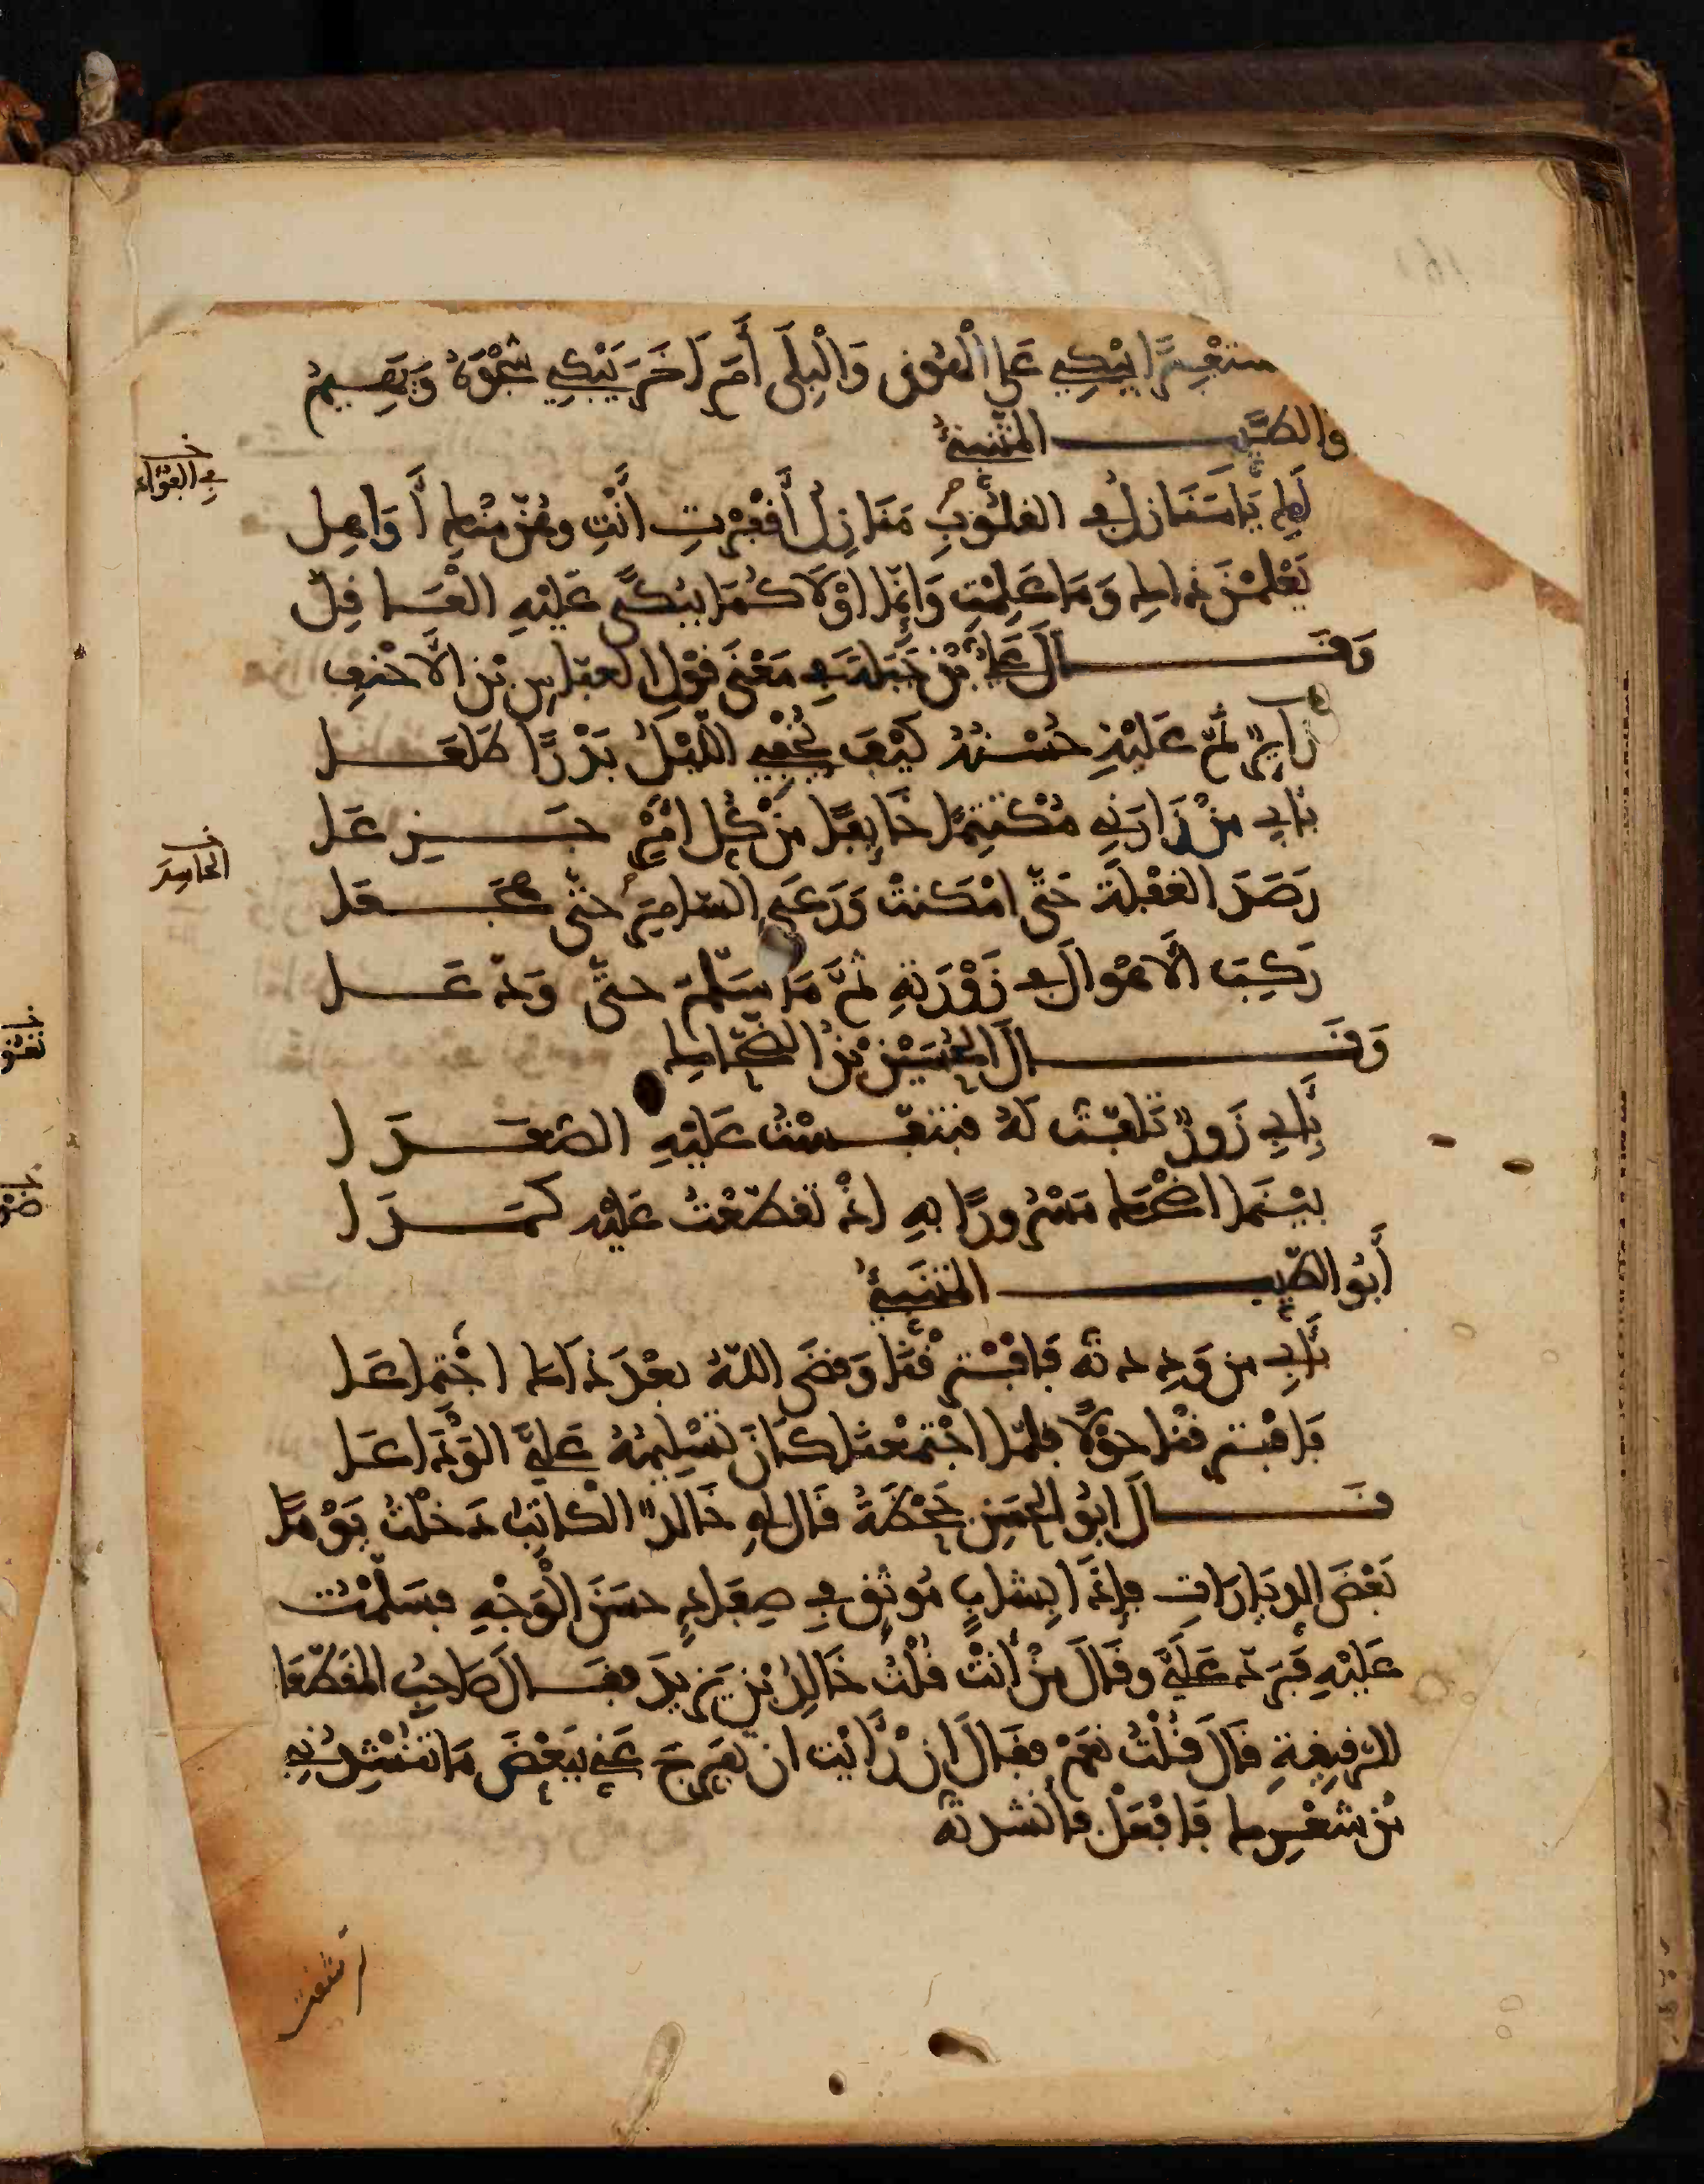 يَبْكِي عَلَى وَالْبِلَى أَمْ آخَرَ يَبْكِي شَجْوَهُ وَيَهِيمُ
والطيب المتنبئ
في الفؤاد
لكِ يَا مَنَازِلُ في القلُوبِ مَنَازِل أَقْفَرْتِ أَنْتِ وهُنّ مِنْكِ أَوَاهِل
يَعْلَمْنَ ذاكِ وَمَا عَلِمْتِ وَإِنَّمَا أَوْلَاكُمَا يُبْكَى عَلَيْهِ الْعَاقِلُ
وَقَال عَلِيّ بْن جَبَلَة في مَعْنَى قَوْل العبّاس بْن الأَحْنَف
زَايِرٌ نَمَّ عَلَيْهِ حُسْنُهُ كَيْفَ يُخْفِي اللَّيْلُ بَدْرًا طَلَعَا
بَابِي مَنْ زَارَنِي مُكْتَتِمًا خَايِفًا مِنْ كُلِّ أَمْرٍ جَزِعَا
الحاسد
رَصَدَ الغَفْلَةَ حَتَّى امْكَنَتْ وَرَعَى السّامِرَ حَتَّى هَجَعَا
رَكِبَ الأَهْوَالَ في زَوْرَتِهِ ثُمَّ مَا سَلَّمَ حتَّى وَدَّعَا
وَقَالَ الحُسَيْنُ بْنُ الضَّحَّاك
بِأَبِي زَوْرٌ تَلَفَّتُّ لَهُ فَتَنَفَّسْتُ عَلَيْهِ الصُّعَدَا
بَيْنَمَا اضْحَكُ مَسْرُورًا بِهِ إِذْ تَقَطَّعْتُ عَلَيْهِ كَمَدَا
أَبُو الطّيِّب المتنبئُ
بَأَبِي من وَدِدتُه فَافْتَرَقْنَا وَقَضَى اللّهُ بَعْدَ ذَاكَ اجْتِمَاعَا
فَافْتَرَقْنَا حَوْلًا فلمّا اجْتَمَعْنَا كَانَ تَسْلِيمُهُ عَلَيَّ الوَدَاعَا
قَالَ ابُو الحَسَنِ جَحْظَةُ قَالَ لِي خَالِدٌ الكَاتِبُ دَخَلْتُ يَوْمًا
بَعْضَ الدِيَارَاتِ فإِذَا بِشَابٍّ مُوثَقٍ في صِفَادٍ حسَنَ الْوَجْهِ فسَلّمْتُ
عَلَيْهِ فَرَدّ عَلَيَّ وقَالَ مَنْ أَنْتَ قُلْتُ خَالِدُ بْن يَزِيدَ فقَالَ صَاحِبُ المُقَطَّعَا
الرّقِيقَةِ قَالَ قُلْتُ نَعَمْ فقَالَ انْ رَأَيْت ان تُفَرِّجَ عَنِّي بِبَعْضِ مَا تُنْشِدُنِي
مِنْ شِعْرِكَ فَافْعَلْ فأنشدتهُ